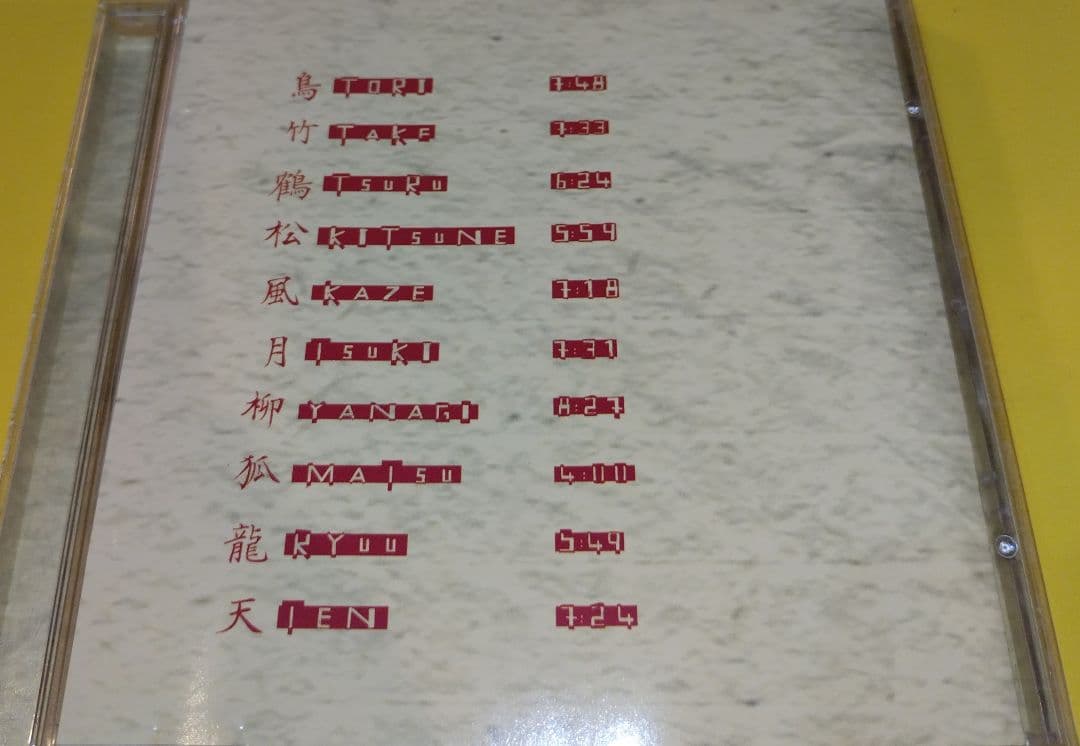 鳥 TORI 7:48
竹 TAKE 7:33
鶴 TsuRu 6:24
松 KITsuNE 5:54
風 KAZE 7:18
月 TsuKI 7:31
柳 YANAGI 8:27
狐 MATsu 4:11
龍 RYuu 5:49
天 TEN 7:24